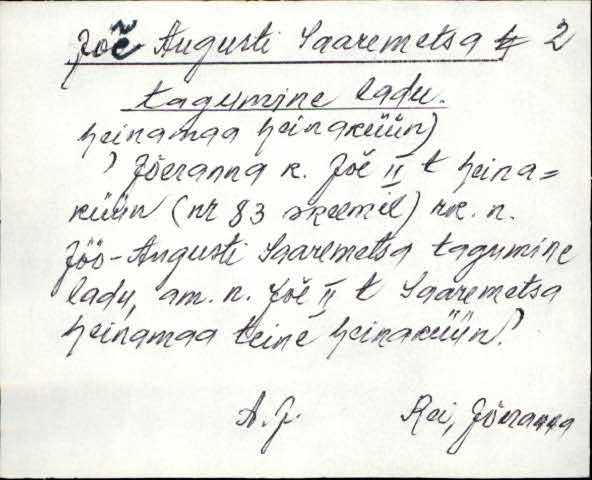 Jõe Augusti Saaremetsa tt 2
tagumine ladu.
heinamaa heinaküün)
) Jõeranna k. Jõe II t heina=
küün (nr 83 skeemil) rk. n.
Jõõ-Augusti Saaremetsa tagumine
ladu, am. n. Jõe II t Saaremetsa
heinamaa teine heinaküün.)
A. J. Rei, Jõeranna